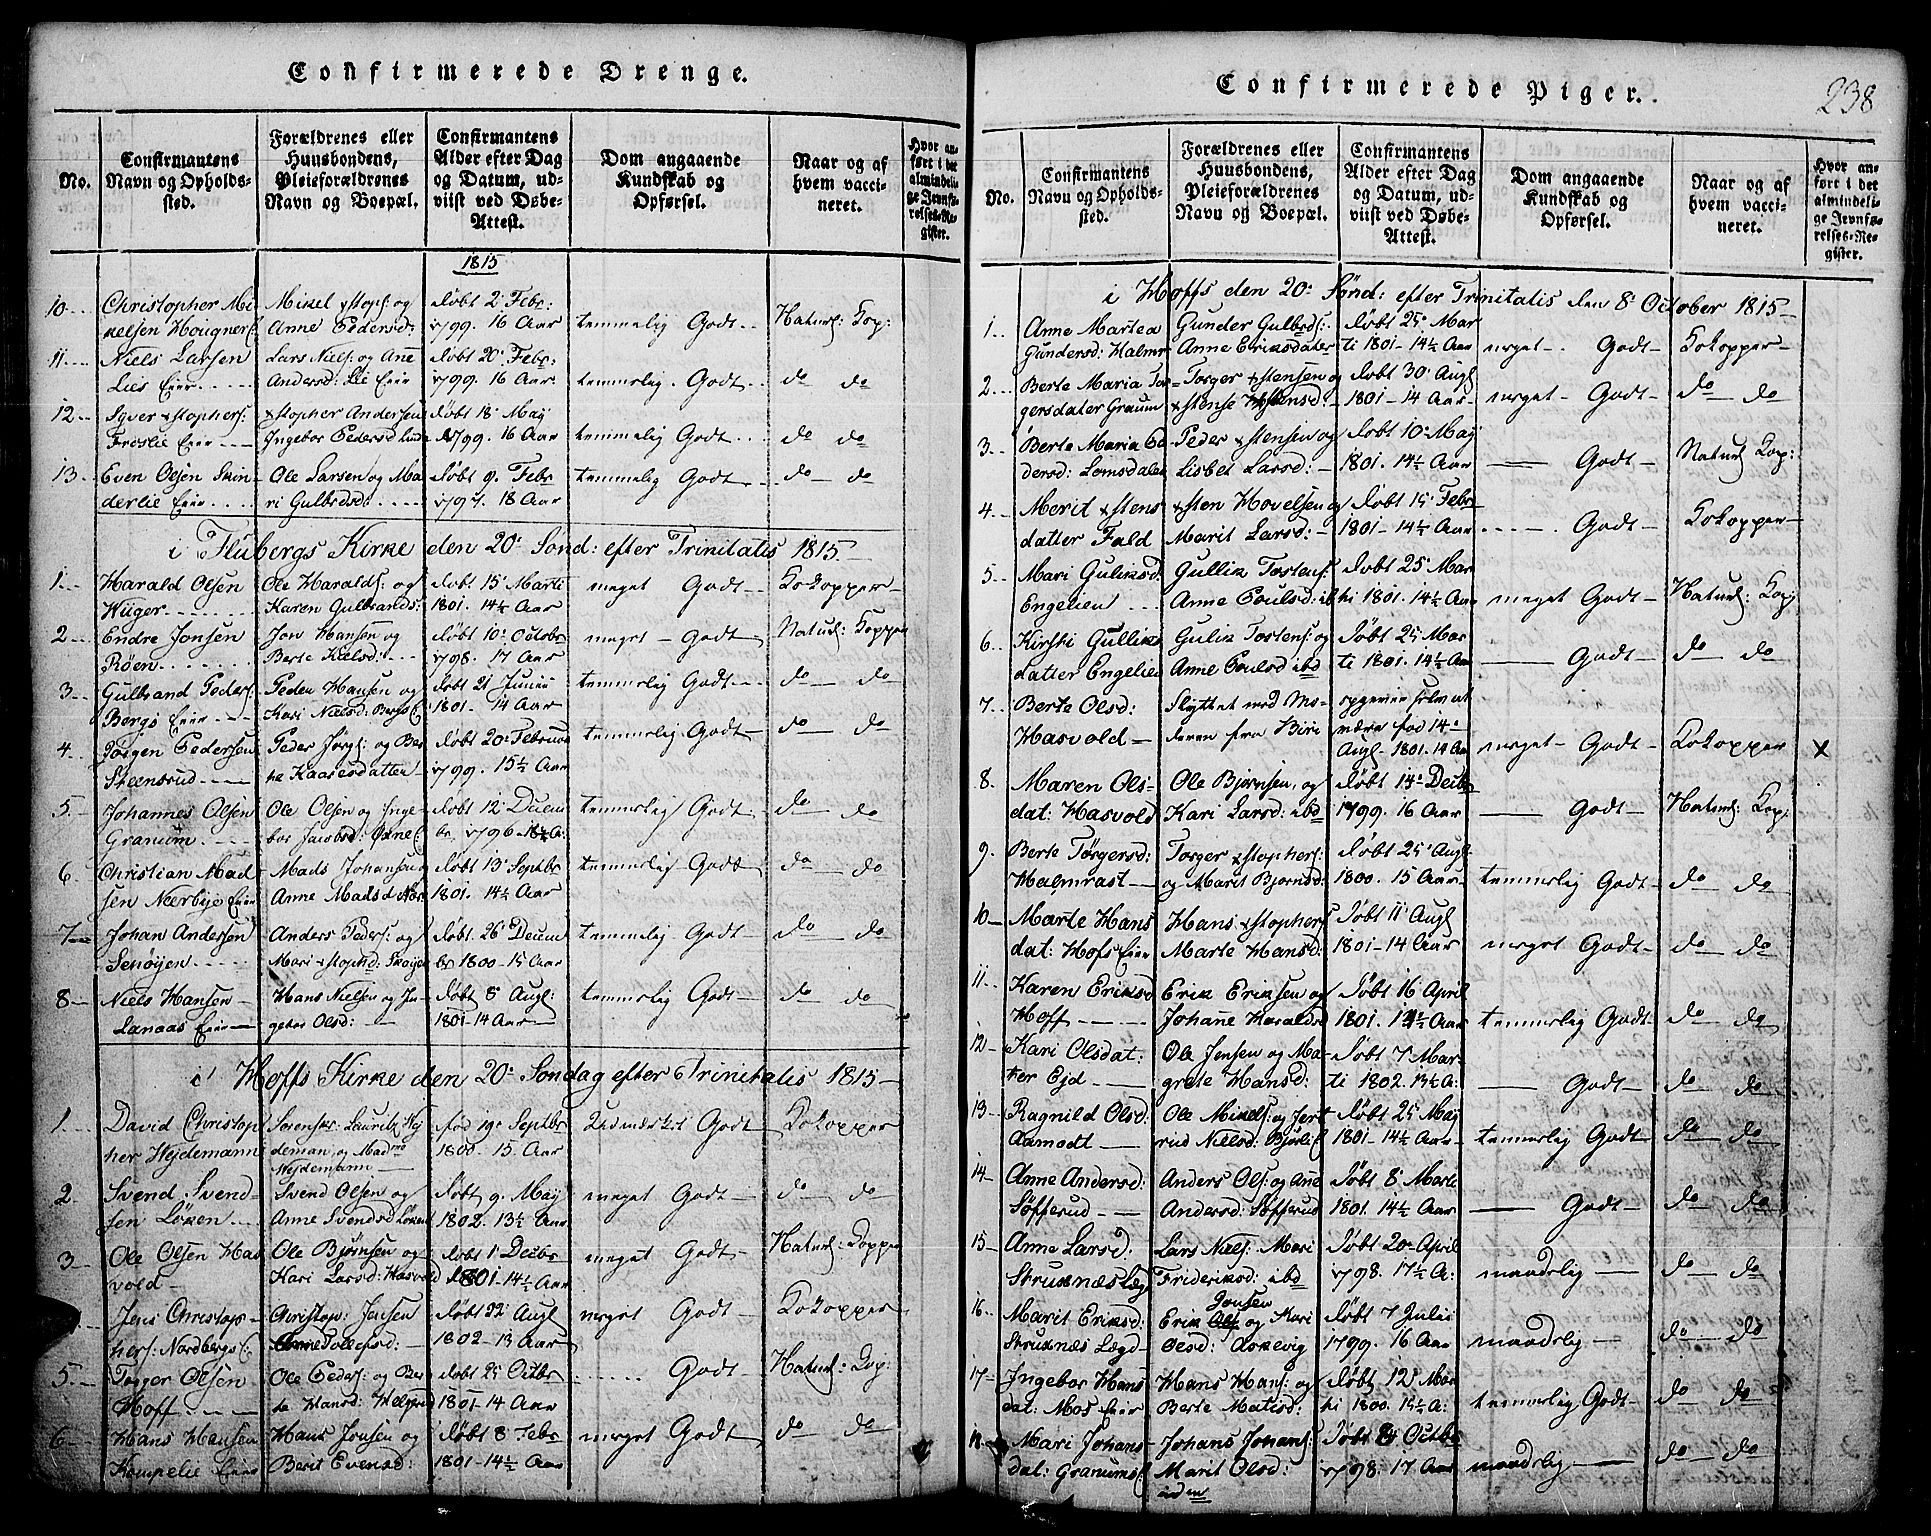 Confirmerede Drenge.
No.
Confirmantens Navn og Opholdssted.
Forældrenes eller Huusbondens, Pleieforældrenes Navn og Boepæl.
Confirmantens Alder efter Dag og Datum, udviist ved Døbe-Attest.
Dom angaaende Kundskab og Opførsel.
Naar og af hvem vaccineret.
Hvor anført i det almindelige Jevnførelses-Register.
1815
10 Christopher Mikelsen Hougner Mikel xstophs: og Anne Pedersd: døbt 2 Febr: 1799. 16 Aar temmelig Godt Naturl: Kop:
11 Niels Larsen Lies Eier Lars Niels: og Ane Andersd: Lie Eier døbt 20 Febr: 1799. 16 Aar temmelig Godt do do
12 Syver xstophers: Froslie Eier xstopher Andersen Ingebor Pedersd døbt 18 May 1799. 16 Aar temmelig Godt do do
13 Even Olsen Skinderlie Eier Ole Larsen og Mari Gulbrdsd: døbt 9 Febr 1797. 18 Aar temmelig Godt do do
i Flubergs Kirke den 20 Sond: efter Trinitatis 1815
1 Harald Olsen Ole Haralds: og Karen Gulbrands: døbt 15 Marti 1801. 14½ Aar meget Godt Kokopper
2 Endre Jonsen Røen Jon Hansen og Berte Kielsd: døbt 10 Octobr 1798. 17 Aar meget Godt Naturl: Kopper
3 Gulbrand Peders: Bergs Eier Peder Hansen og Kari Nielsd: Bergs E døbt 21 Junii 1801. 14 Aar temmelig Godt do do
4 Jørgen Pedersen Steensrud Peder Jørg: og Berthe Kaaresdatter døbt 20 Februar 1799. 15½ Aar temmelig Godt do do
5 Johannes Olsen Granum Ole Olsen og Ingebor Jacobsd: døbt 12 Decembr. 1796 temmelig Godt do do
6 Christian Madsen Neerbye Eier Mads Johansen Anne Madsd døbt 13 Septbr 1801. 14½ Aar temmelig Godt do do
7 Johan Andersen Senøyen Anders Peders: og Mari xstophd: døbt 26 Decembr 1800 15 Aar temmelig Godt do do
8 Niels Hansen Lanaas Eier Hans Nielsen og Ingebor Olsd: døbt 8 Augl: 1801 14 Aar temmelig Godt do do
i Hoffs Kirke den 20 Sondag efter Trinitatis 1815
1 David Christopher Hejdemann Sorenskr: Lauritz Hejdeman og Madme Hejdemann fød 19 Septbr 1800 15 Aar Udmærket Godt Kokopper
2 Svend Svendsen Løken Svend Olsen og Anne Svendsd Løken døbt 9 May 1802. 13½ Aar meget Godt do do
3 Ole Olsen Hasvold Ole Bjørnsen og Kari Larsd: Hasvold døbt 1 Decbr 1801 14½ Aar meget Godt Naturl: Kopper
Jens Christophers: Nordbergs E: Christop: Jensen Tollefsd: døbt 22 Augl 1802 13 Aar meget Godt Kokopper
5 Torger Olsen Hoff Ole Peders: og Berte Hansd: døbt 25 Octbr 1801 14 Aar Godt Naturl: Kop:
6 Hans Hansen Kompelie Eier Hans Jensen og Berit Evensd: døbt 8 Febr 1801 14½ Aar meget Godt do do
Confirmerede Piger.
238
No.
Confirmantens Navn og Opholdssted.
Forældrenes eller Huusbondens, Pleieforældrenes Navn og Boepæl.
Confirmantens Alder efter Dag og Datum, udviist ved Døbe-Attest.
Dom angaaende Kundskab og Opførsel.
Naar og af hvem vaccineret.
Hvor anført i det almindelige Jevnførelses-Register.
i Hoffs den 20 Sønd: efter Trinitatis den 8 October 1815
1 Anne Martea Gundersd: Halmr Gunder Gulbrds: Anne Eriksdater døbt 25 Marti 1801 14½ Aar meget Godt Kokopper
2 Berte Maria Torgersdater Graum Torger xstensen og xstense døbt 30 Augl 1801 14 Aar meget Godt do do
3 Berte Maria Pedersd: Lomsdalen Peder xstensen og Lisbet Larsd: døbt 10 May 1801. 14½ Aar Godt Naturl Kop:
4 Merit xstensdatter Fald xsten Hovelsen og Marit Larsd: døbt 15 Febr 1801 14½ Aar Godt Kokopper
5 Mari Guliksd: Engelien Gullik Tostens: Anne Poulsd: ibd døbt 25 Marti 1801. 14½ Aar meget Godt Naturl: Kop
6 Kirsti Gulliksdatter Engelien Gulik Tostens: og Anne Poulsd ibd døbt 25 Marti 1801. 14½ Aar Godt do do
7 Berte Olsd: Hasvold Flyttet med Moderen fra Biri opgiver selv at være fød 14 Augl 1801. 14 Aar meget Godt Kokopper x
8 Maren Olsdat: Hasvold Ole Bjørnsen og Kari Larsd: ibd døbt 14 Decbr 1799. 16 Aar Godt Naturl: Kop:
9 Berte Tørgersd: Halmrast Torger xstophers: og Marit Bjørnsd: døbt 25 Augl 1800. 15 Aar temmelig Godt do do
10 Marte Hansdat: Hofs Eier Hans xstophers Marte Hansd: døbt 11 Augl 1801 14 Aar meget Godt do do
11 Karen Eriksd Hoff Erik Eriksen og Johane Haraldsd døbt 16 April 1801. 14½ Aar temmelig Godt do do
12 Kari Olsdatter Ejd Ole Jensen og Magrete Hansd: døbt 7 Marti 1802. 13½ A: Godt do do
13 Ragnild Olsd: Aamodt Ole Mikels: og Jertrud Nielsd: Bjørlie døbt 25 May 1801 14½ Aar temmelig Godt do do
14 Anne Andersd: Søfferud Anders Ols: og Ane Andersd: Søfferud døbt 8 Marti 1801. 14½ Aar Godt do do
15 Anne Larsd. Struxnæs Læg Lars Niels: Mari Frideriksd: ibd døbt 20 April 1798. 17½ A: maadelig do do
16 Marit Eriksd: Struxnæs Lægd Erik Jonsen og Kari Olsd: Askevig døbt 7 Julii 1799. 16 Aar maadelig do do
17 Ingebor Hansdat: Mos Eier Hans Hans: og Berte Matisd: døbt 12 Marti 1800. 15½ A: temmelig Godt do do
18 Mari Johansdat: Granums E Johans Johans: Marit Olsd: døbt Octbr 1798. 17 Aar maadelig do do